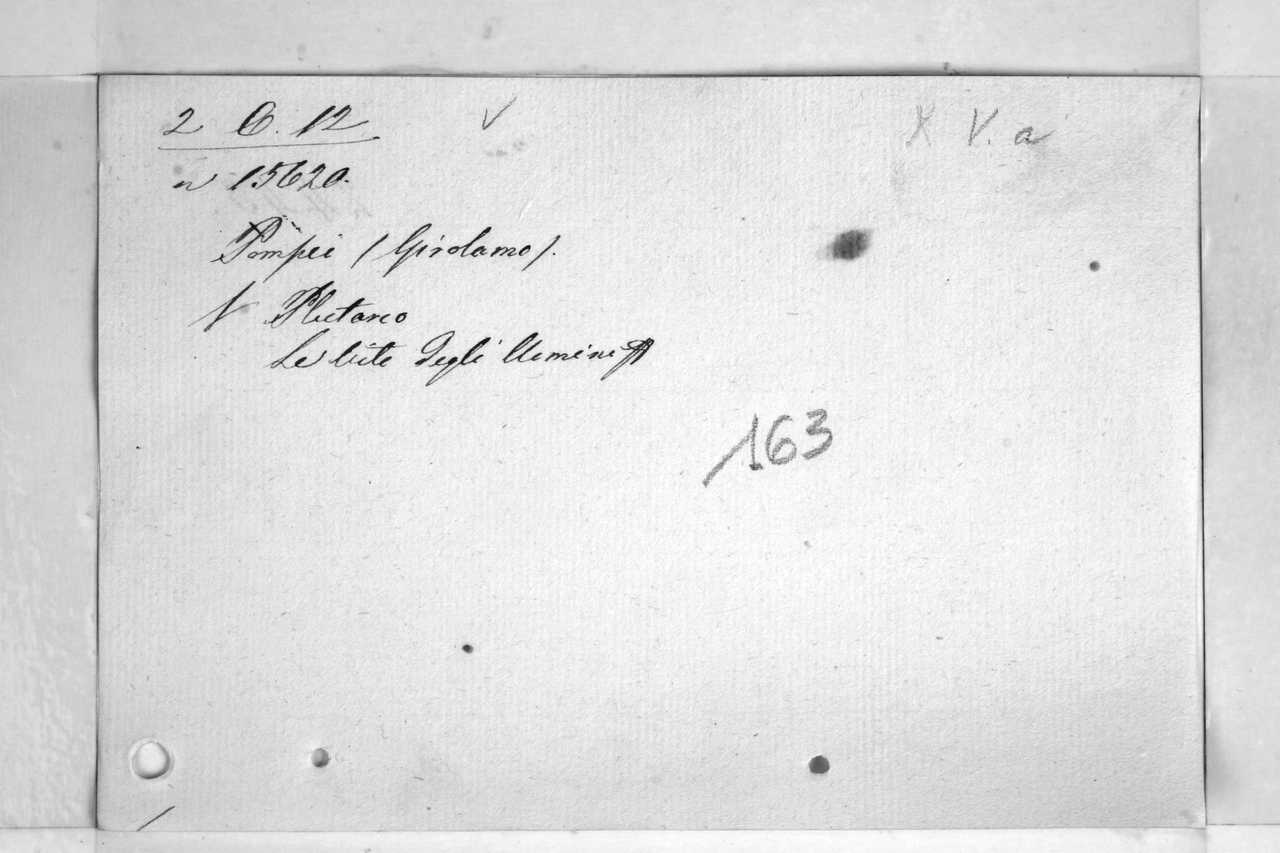 2 C. 12 V X V. a
n 15620.
Pompei (Girolamo).
V Plutarco
Le Vite degli Uomini
163